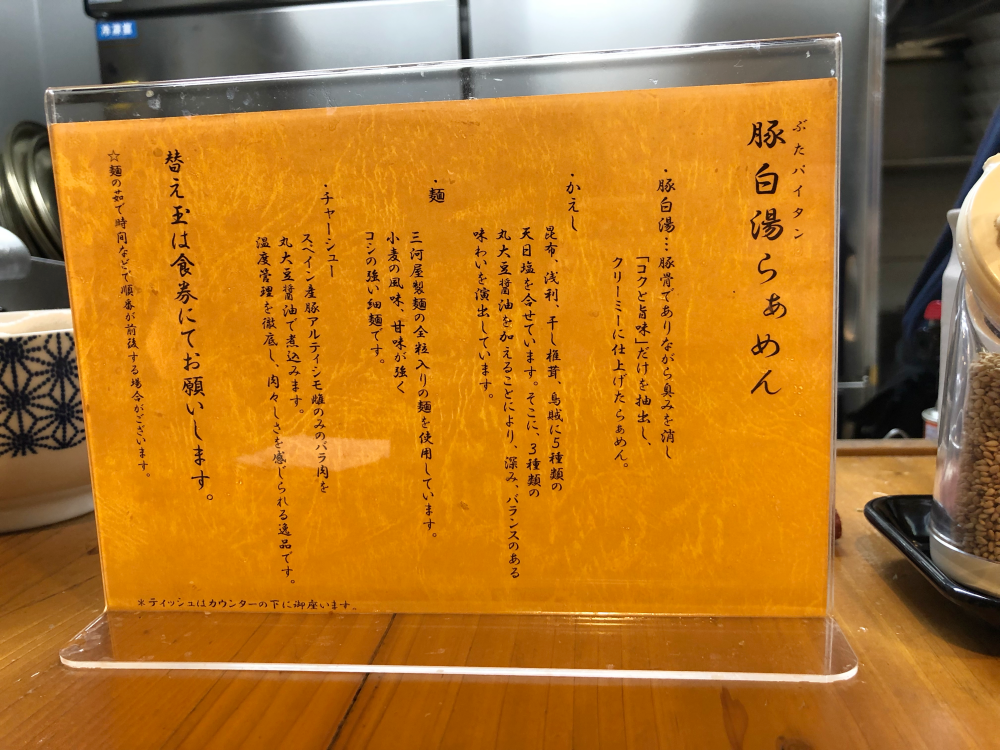 冷凍室
ぶたパイタン
豚白湯らぁめん
・豚白湯…豚骨でありながら臭みを消し
「コクと旨味」だけを抽出し、
クリーミーに仕上げたらぁめん。
・かえし
昆布、浅利、干し椎茸、烏賊に5種類の
天日塩を合せています。そこに、3種類の
丸大豆醤油を加えることにより、深み、バランスのある
味わいを演出しています。
・麺
三河屋製麺の全粒入りの麺を使用しています。
小麦の風味、甘味が強く
コシの強い細麺です。
・チャーシュー
スペイン産豚アルティシモ雌のみのバラ肉を
丸大豆醤油で煮込みます。
温度管理を徹底し、肉々しさを感じられる逸品です。
替え玉は食券にてお願いします。
☆麺の茹で時間などで順番が前後する場合がございます。
※ティッシュはカウンターの下に御座います。